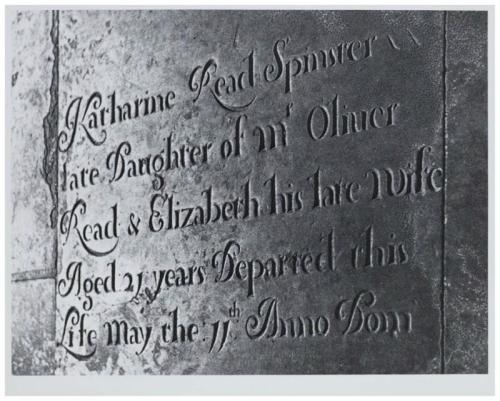 Katharine Read Spinster
late Daughter of Mr Oliver
Read & Elizabeth his late Wife
Aged 21 years Departed this
Life May the 11th Anno Dom